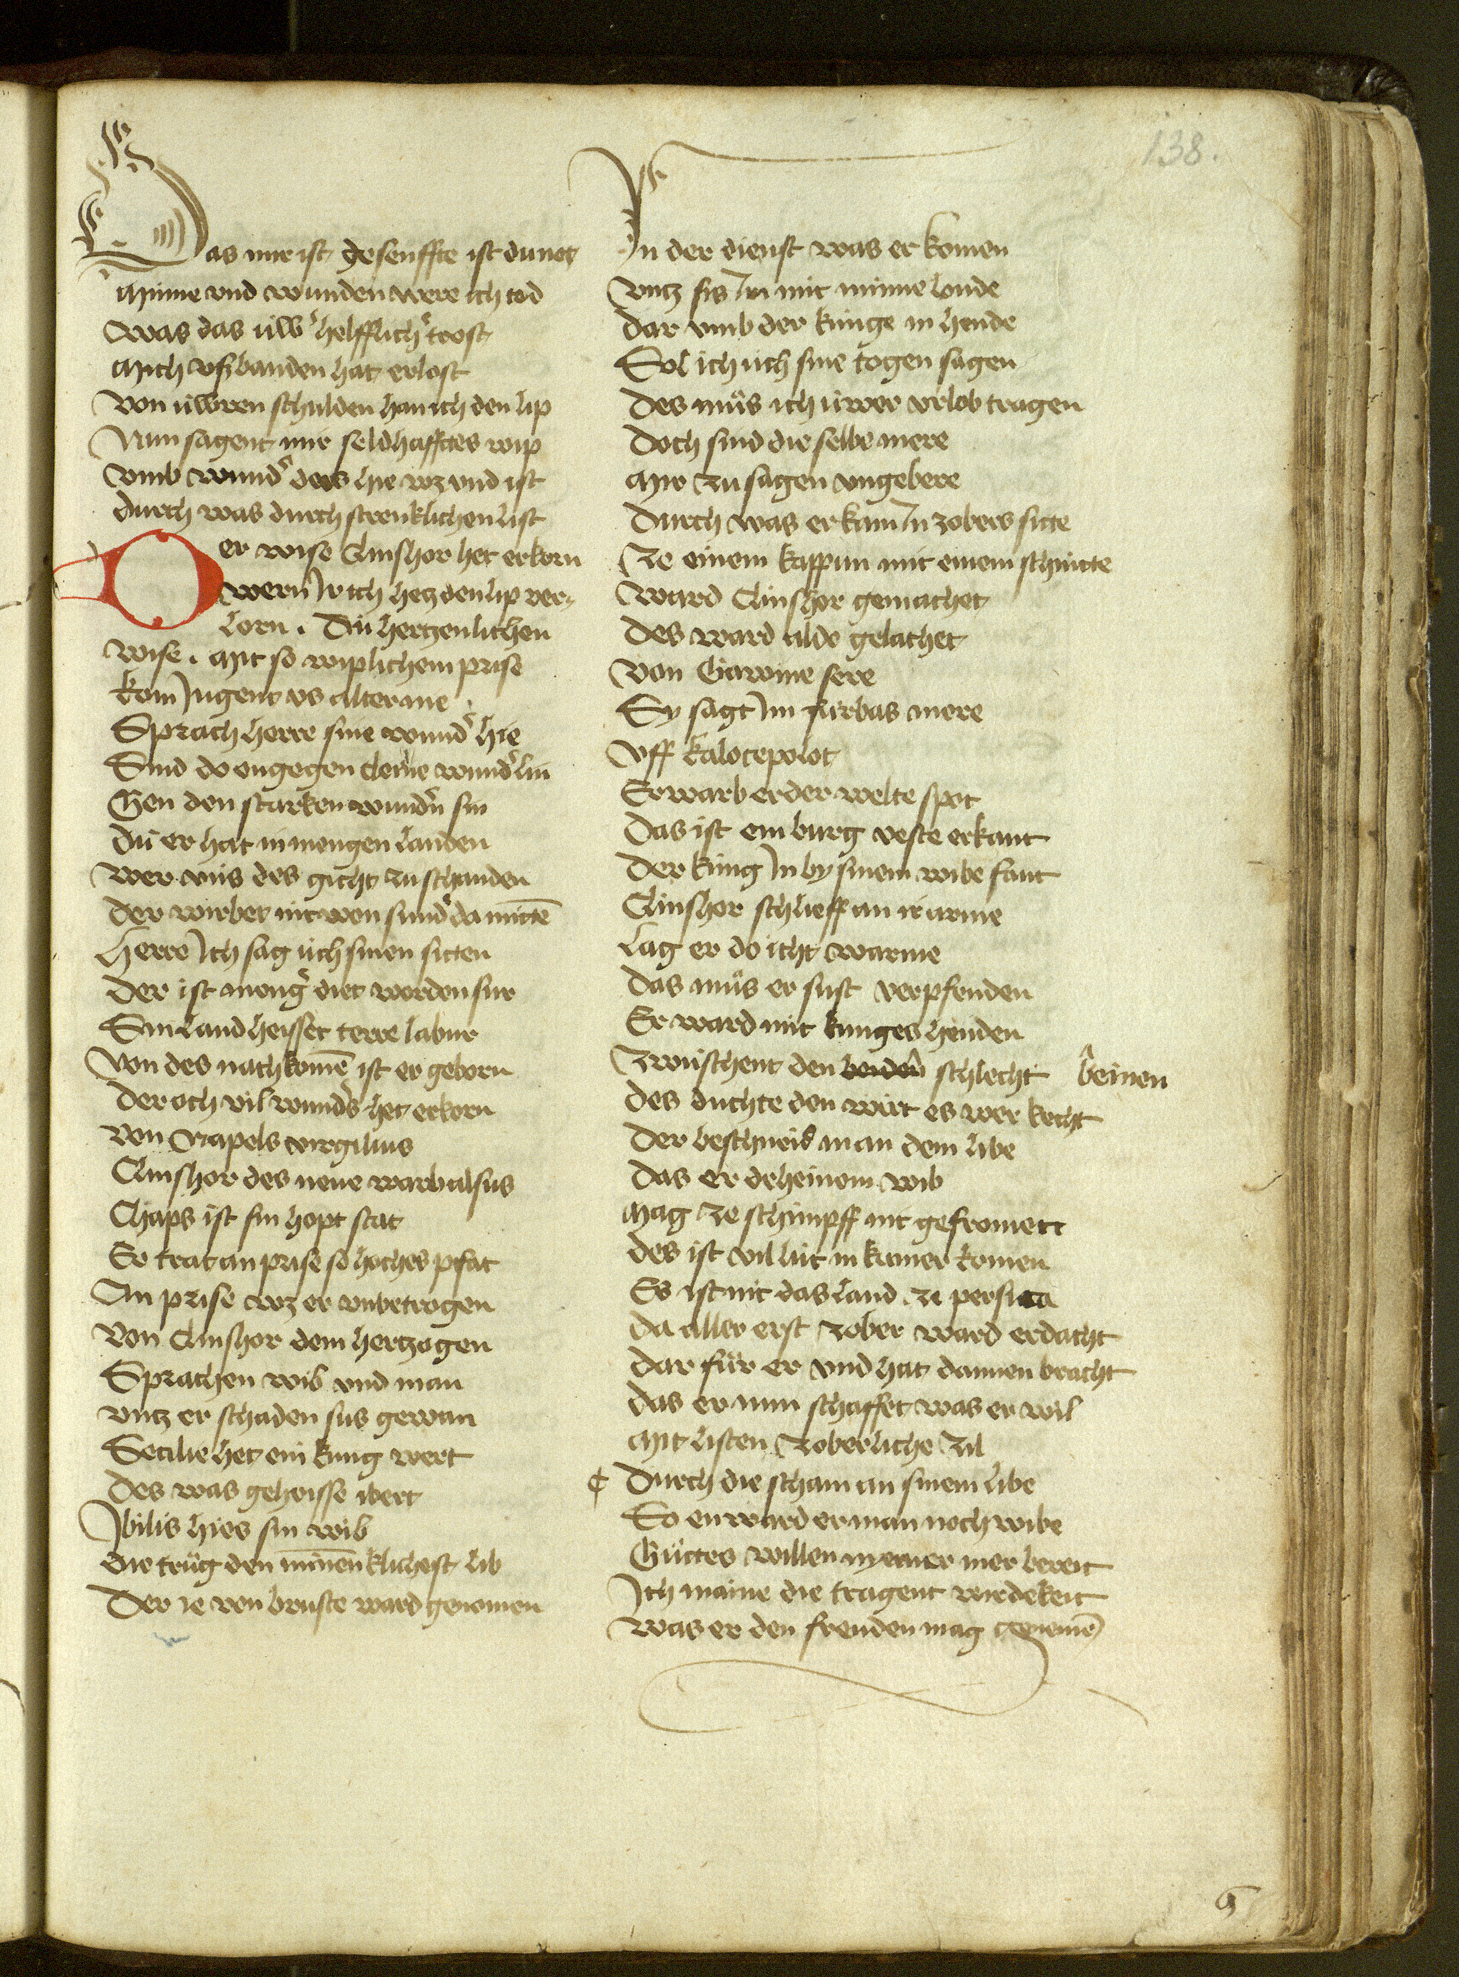 138.
Das mir ist gesenffte ist du not
Minne vnd wunden were ich tod
Was das üw' helfflich' trost
Mich vß banden hat erlost
Von üwren schulden han ich den lip
Nun sagent mir seldhafftes wip
Vmb wund' des hie wz vnd ist
Durch was durch strenklichen list
Der wise Clinshor het erkorn
Wern Ir ich hetz den lip ver-
lorn . Dü hertzenlichen
Wise . Mit so wiplichem prise
kom Jugent vs alter nie
Sprach herre sine wund' hie
Sind do engegen cleine wund'lin
Gen den starken wund'n sin
Dü er hat in mengen landen
Wer vnns des gicht zu schanden
Der wirbet nit won sünd' da mitte
Herre Ich sag üch sinen sitten
Der ist meng' diet worden sur
Sin land heisset terre labur
Von des nachkome ist er geborn
Der och vil wunds het erkorn
Von Napels virgilius
Clinshor des neue warb alsus
Chaps ist sin hopt stat
Er trat an prise so hoches pfat
An prise wz er vnbetrogen
Von Clinshor dem hertzogen
Sprachen wib vnd man
Vntz er schaden sus gewan
Secilie het ein kung wert
Des was geheisse ibert
Ibilis hies sin wib
Die trüg den minenklichest lib
Der ie von bruste ward genomen
In der dienst was er komen
Vntz sis In mit minne londe
Dar vmb der künge in hende
Sol ich üch sine togen sagen
Des müs ich üwer vrlob tragen
Doch sind die selbe mere
Mir zu sagen vngebere
Durch was er kam In zobers sitte
Ze einem kappun mit einem schnitte
Ward Clinshor gemachet
Des ward aldo gelachet
Von Gawine sere
Sy sagt Im fürbas mere
Vff kalotepolot
Erwarb er der welte spot
Das ist ein burg veste erkant
Der küng In by sinem wibe fant
Clinshor schlieff an ir arme
Lag er do icht warme
Das müs er sust verpfenden
Er ward mit kunges henden
Zwischent den beiden schlecht beinen
Des duchte den wirt es wer kecht
Der beschneid man dem libe
Das er deheinem wib
Mag ze schimpff nit gefromett
Des ist vil lüt in kumer komen
Es ist nit das land ze persica
Da aller erst zober ward erdacht
Dar für er vnd hat dannen bracht
Das er nun schaffet was er wil
Mit listen zoberliche zil
Durch die scham an sinem libe
So en ward er man noch wibe
Güttes willen nyemer mer bereit
Ich maine die tragent wirdekeit
Was er den frenden mag genemē